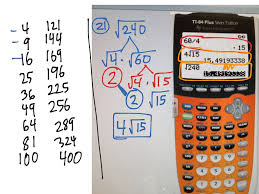 - 4 121
- 9 144
- 16 169
25 196
36 225
49 256
64 289
81 324
100 400
21 √240
√4 · √60
2 √4 · √15
2 √15
4√15
TI-84 Plus
60
60/4
15
4√15
15.49193338
√240
15.49193338